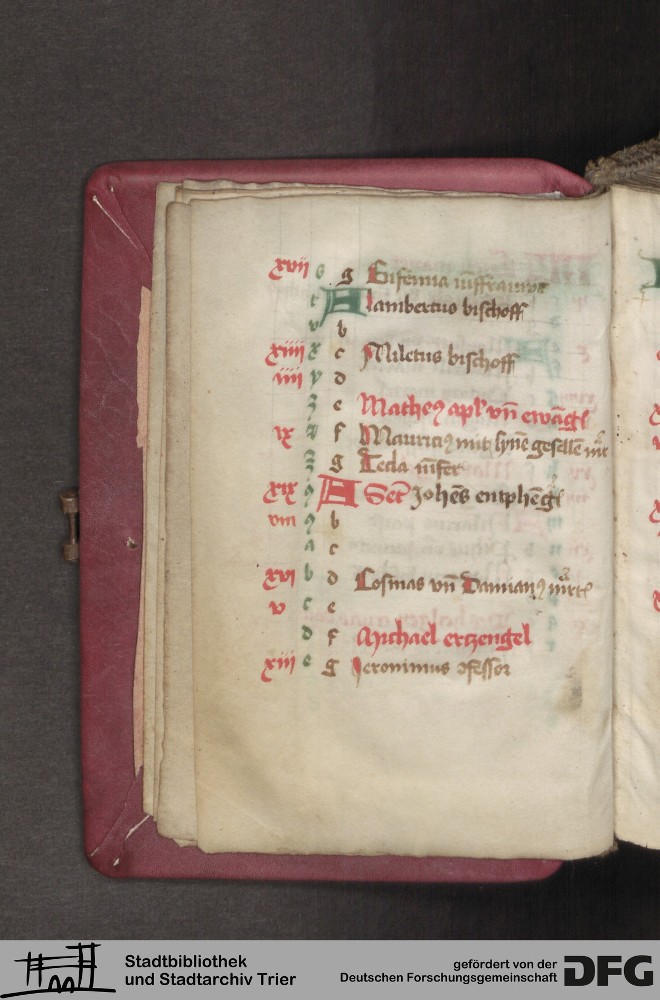 xvij s g Eufemia iūffrauwe
t A lambertus bischoff
v b
xiiij x c Miletus bischoff
iiij y d
z e Matheꝯ apl' vn̄ ewāgl'
ix f Mauriciꝯ mit syne gesellē
g Tecla iūfer
xix A Sct' Johēs entphēg
viij b
a c
xvi b d Cosmas vn̄ Damianꝯ
v c e
d f Michael ertzengel
xiii e g Jeronimus ɔfessor
Stadtbibliothek
und Stadtarchiv Trier
gefördert von der
Deutschen Forschungsgemeinschaft
DFG